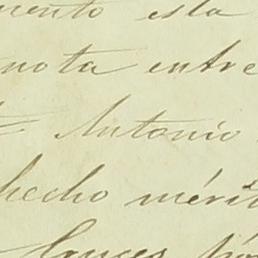 mento esta
nota entre
Antonio
hecho mérit